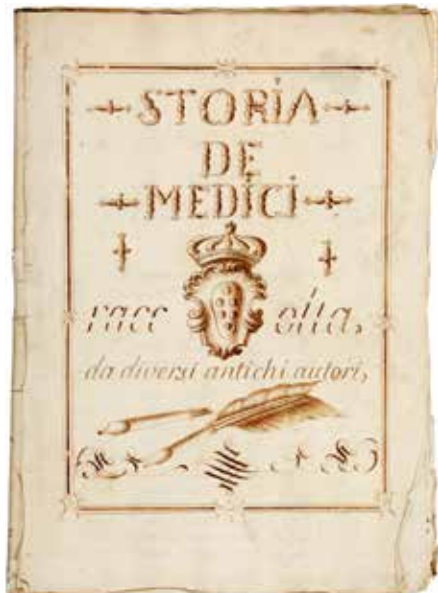 STORIA
DE
MEDICI
racc olta,
da diversi antichi autori,